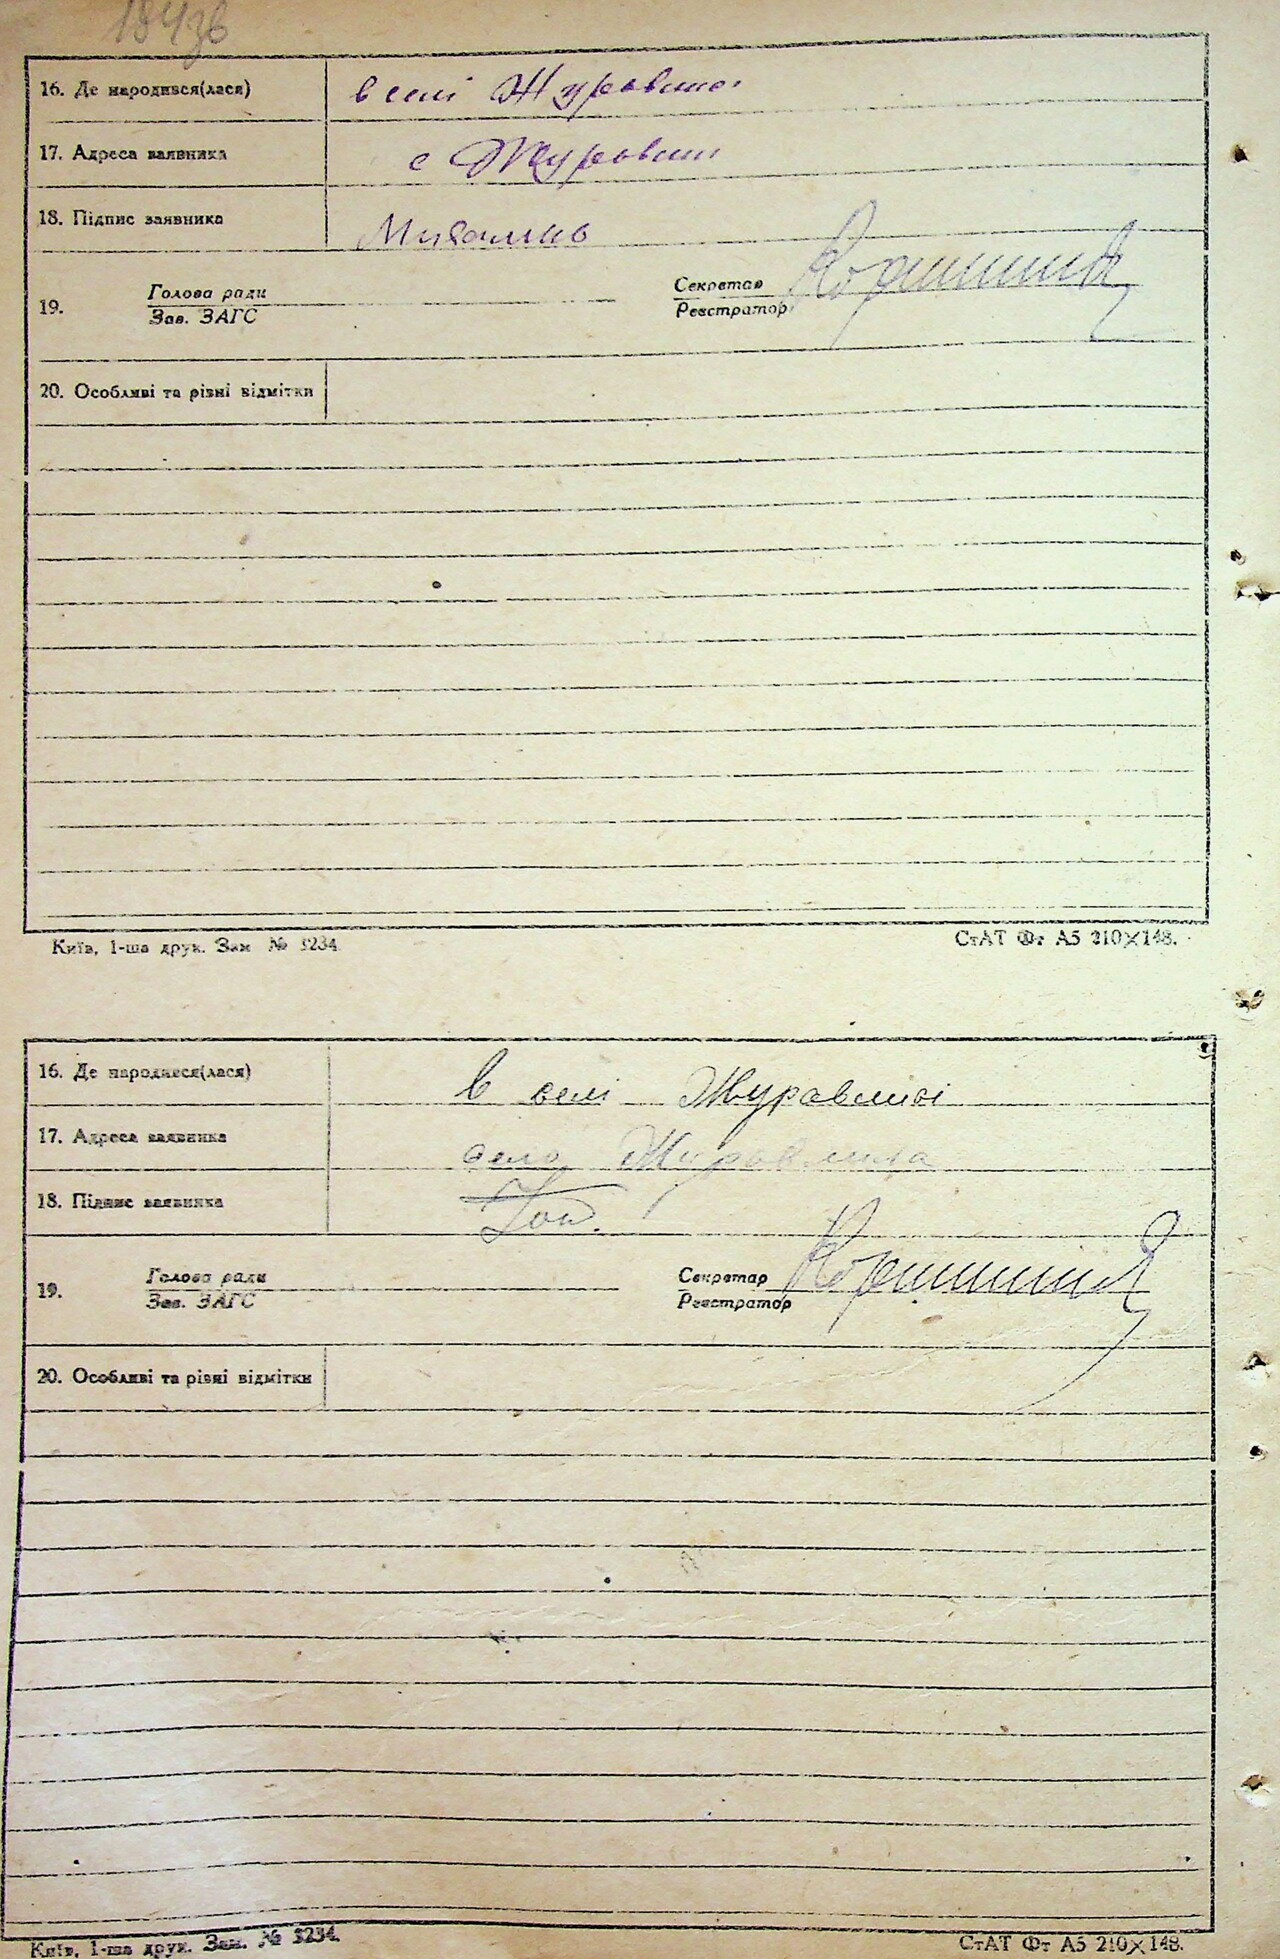 184зв
16. Де народився(лася) в селі Журавлині
17. Адреса заявника с Журавли
18. Підпис заявника
19. Голова ради Секретар
Зав. ЗАГС Реєстратор
20. Особливі та різні відмітки
Київ, 1-ша друк. Зам № 1234 СтАТ Фт А5 210×148.
16. Де народився(лася) в селі Журавлині
17. Адреса заявника село Журавлина
18. Підпис заявника
19. Голова ради Секретар
Зав. ЗАГС Реєстратор
20. Особливі та різні відмітки
Київ, 1-ша друк. Зам. № 1234. СтАТ Фт А5 210×148.